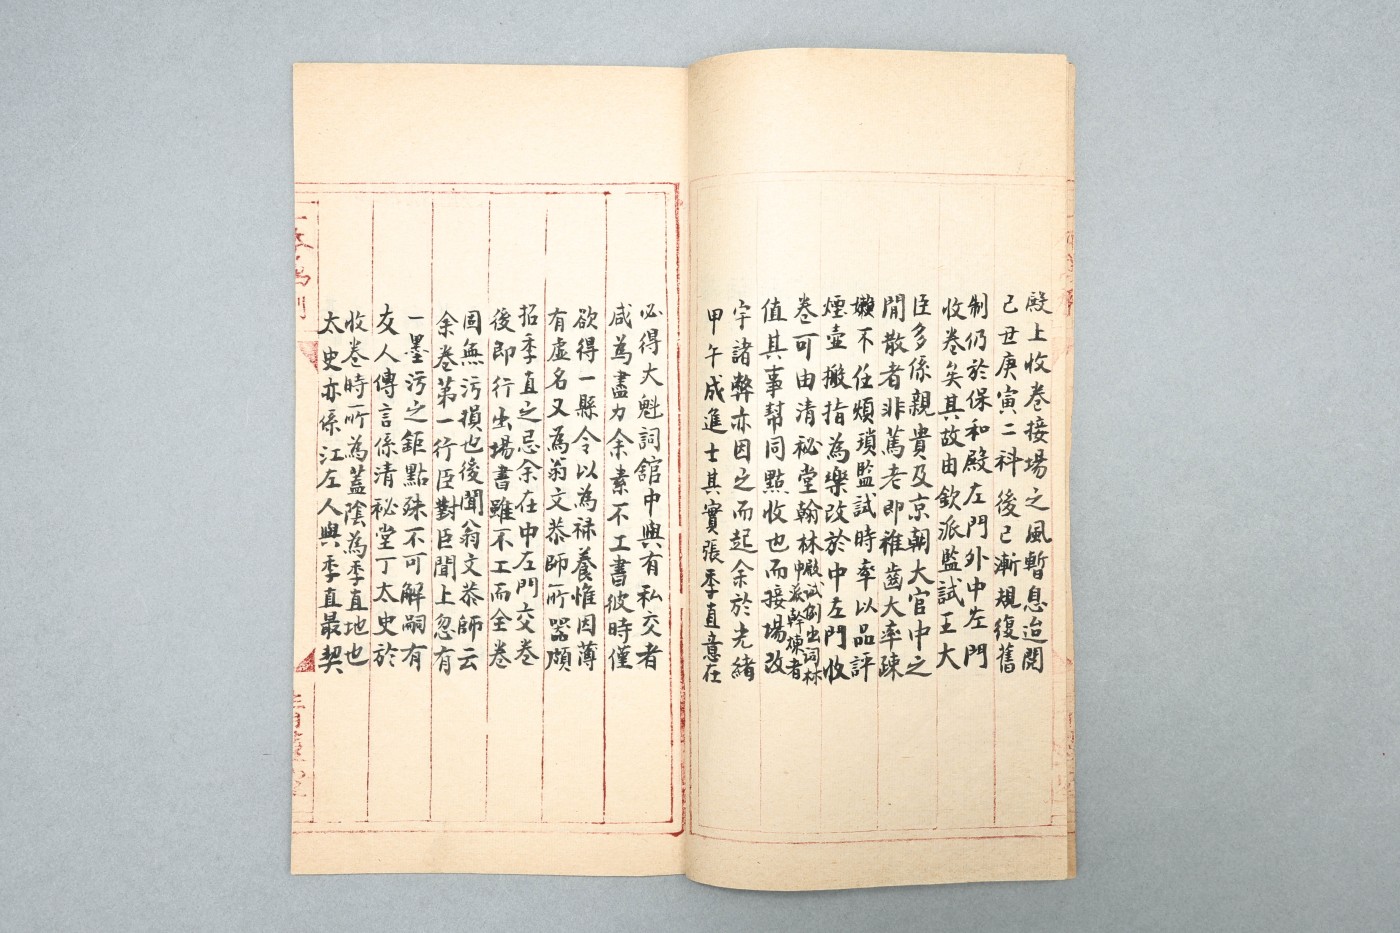 殿上收卷接場之風暫息迨閱
己丑庚寅二科後已漸規復舊
制仍於保和殿左門外中左門
收卷矣其故由欽派監試王大
臣多係親貴及京朝大官中之
閒散者非篤老即稚齒大率疎
嬾不任煩瑣監試時率以品評
煙壷搬指為樂改於中左門收
卷可由清祕堂翰林
殿試例出詞林
中派幹練者
值其事幫同點收也而接場改
字諸弊亦因之而起余於光緒
甲午成進士其實張季直意在
必得大魁詞舘中與有私交者
咸為盡力余素不工書彼時僅
欲得一縣令以為祿養惟因薄
有虛名又為翁文恭師所器頗
招季直之忌余在中左門交卷
後即行出場書雖不工而全卷
固無污損也後聞翁文恭師云
余卷第一行臣對臣聞上忽有
一墨污之鉅點殊不可解嗣有
友人傳言係清祕堂丁太史於
收卷時所為蓋陰為季直地也
太史亦係江左人與季直最契